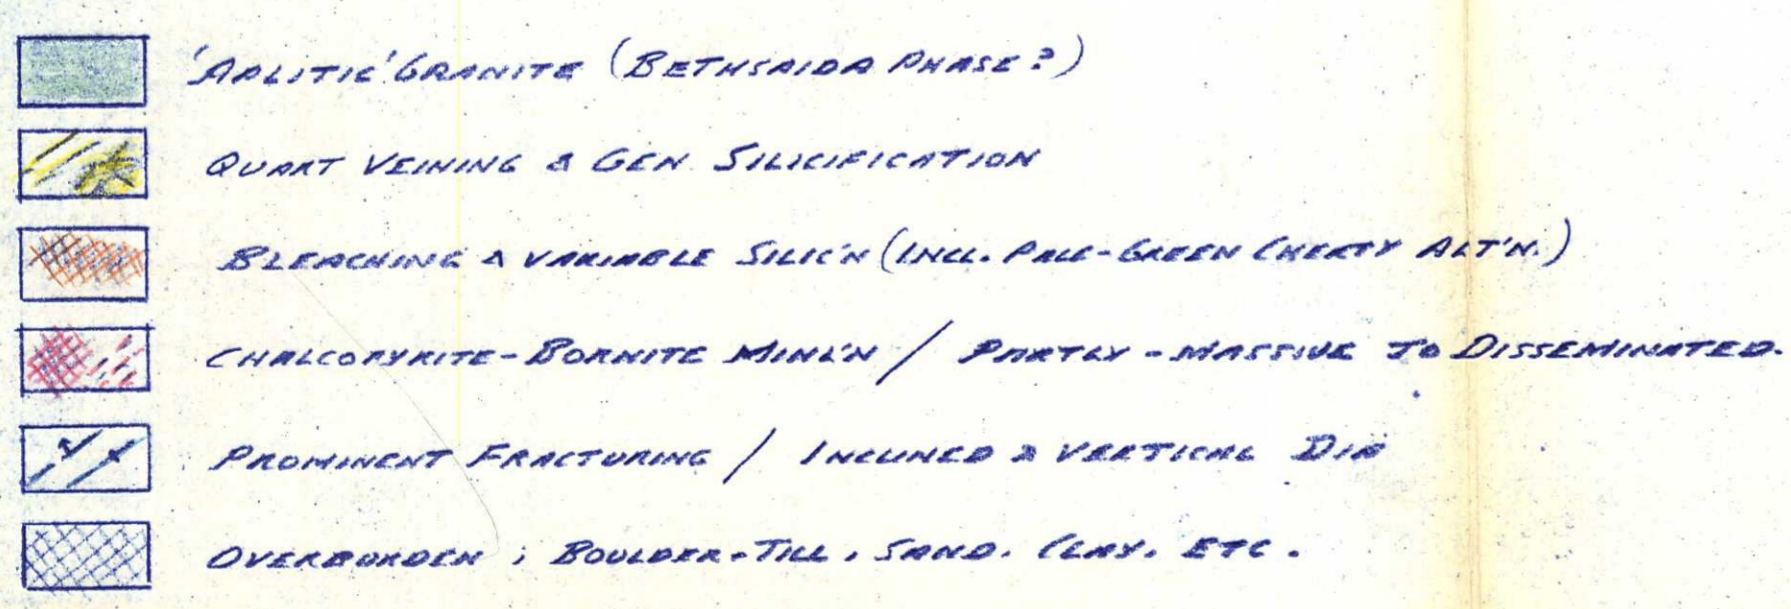 'APLITIC' GRANITE (BETHSAIDA PHASE?)
QUART VEINING & GEN. SILICIFICATION
BLEACHING & VARIABLE SILIC'N (INCL. PALE-GREEN CHERTY ALT'N.)
CHALCOPYRITE-BORNITE MINL'N / PARTLY-MASSIVE TO DISSEMINATED.
PROMINENT FRACTURING / INCLINED & VERTICAL DIP
OVERBURDEN; BOULDER-TILL, SAND, CLAY, ETC.